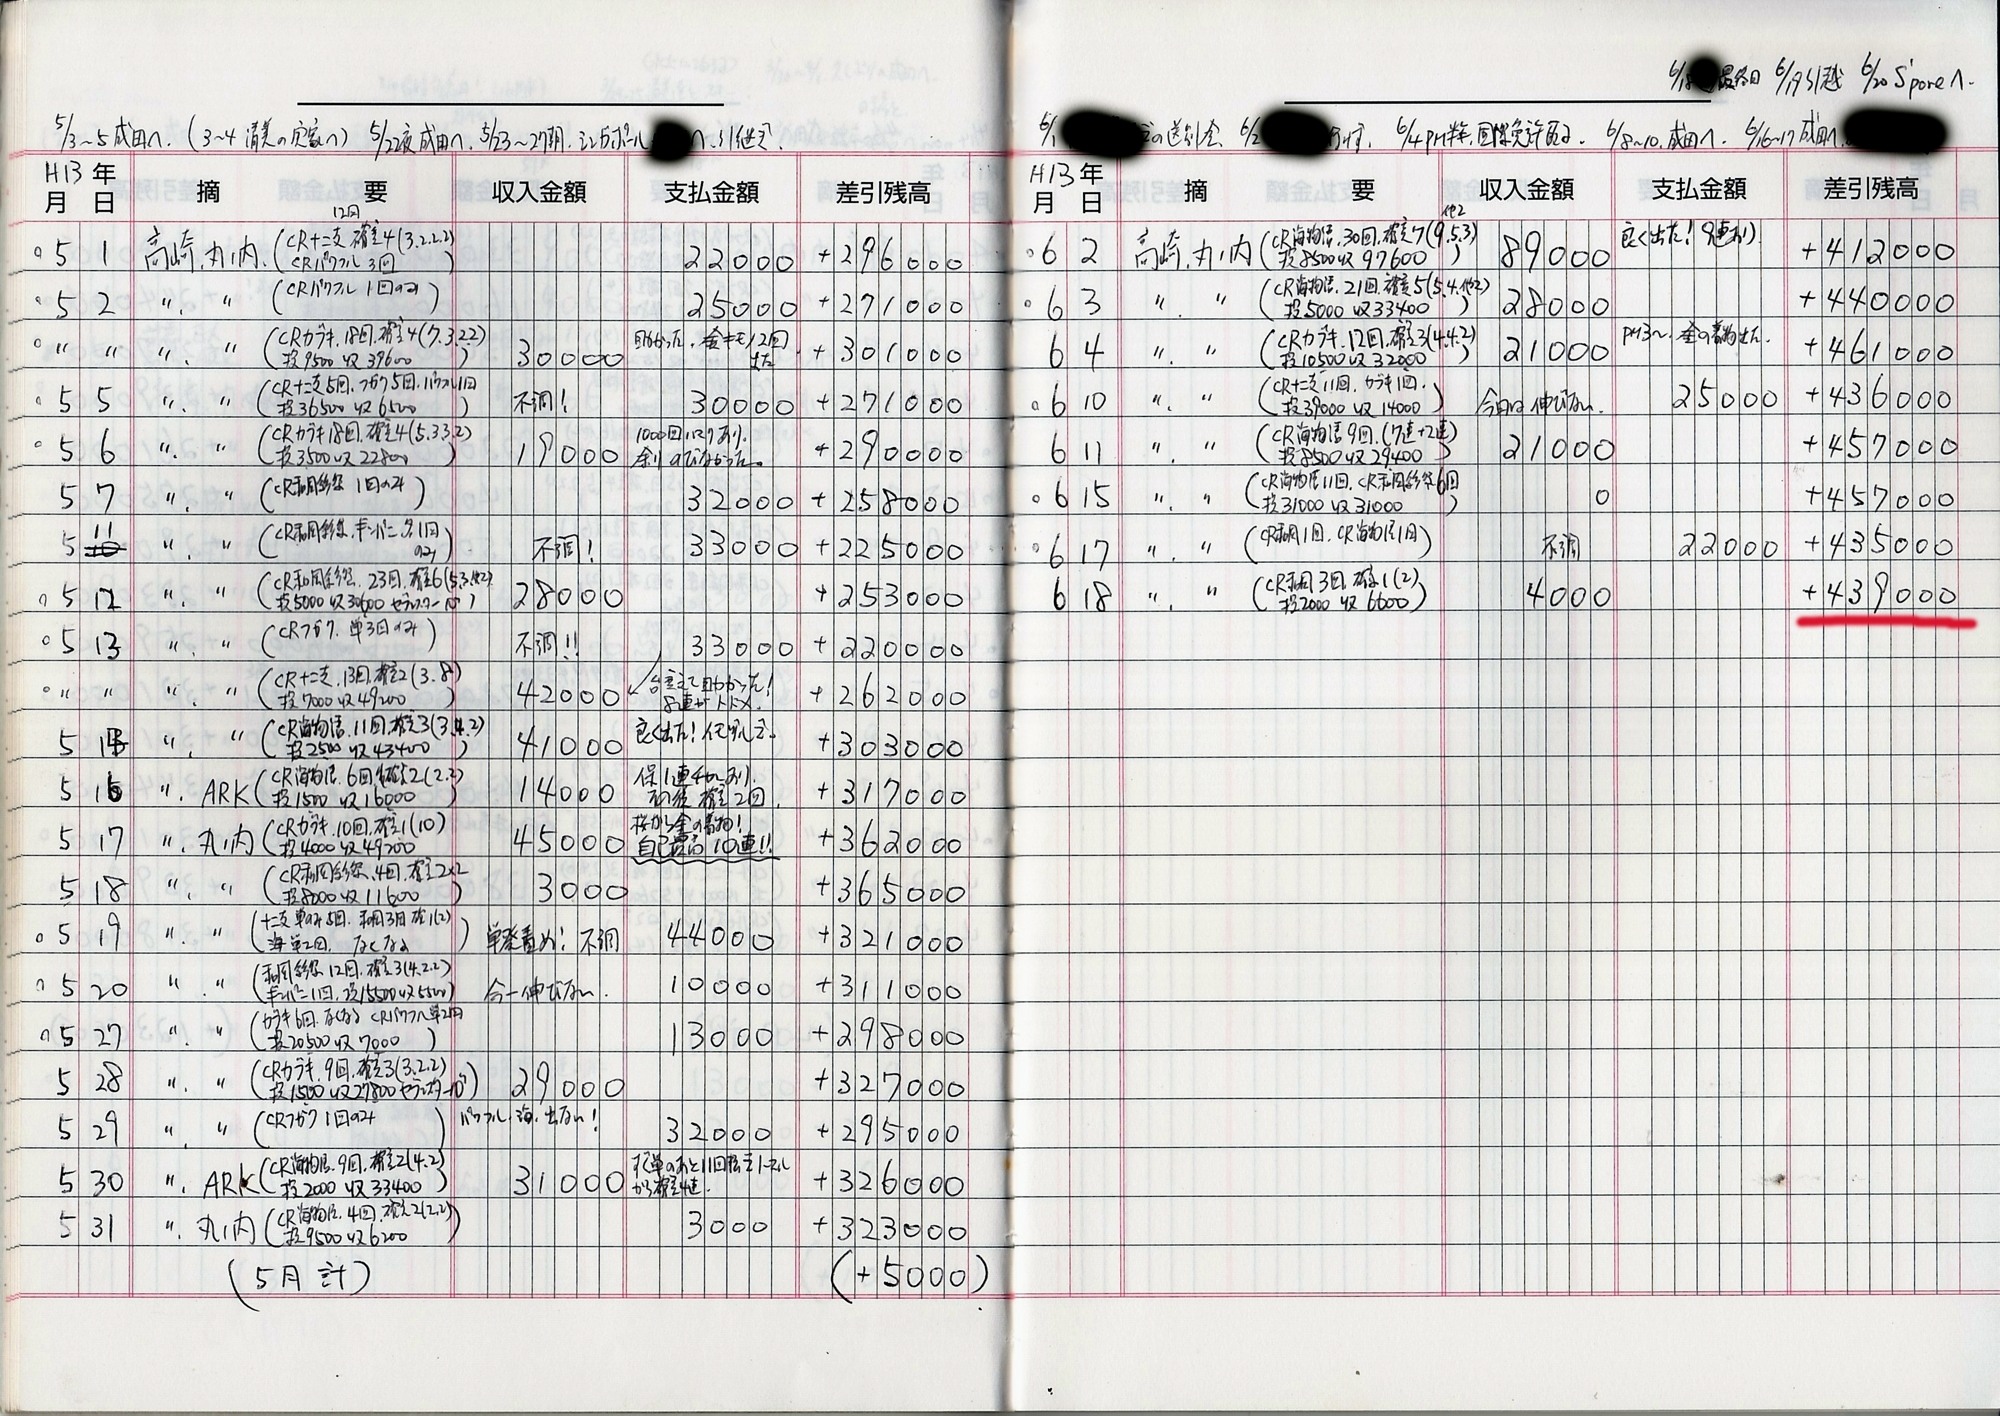 5/3~5 成田へ. (3~4 清美の実家へ) 5/22夜成田へ. 5/23~27朝. シンガポール へ.引継ぎ.
H13年
月 日 摘 要 収入金額 支払金額 差引残高
12回
5 1 高崎.丸ノ内.(CR十二支 確変4(3.2.2.2) 22000 +296000
CRパワフル 3回 )
5 2 〃. 〃 (CRパワフル 1回のみ) 25000 +271000
〃 〃 〃. 〃 (CRガラキ.18回.確変4(7.3.2.2) 30000 助かった.金キモノ2回 +301000
投9500 収39600 ) 出た
5 5 〃. 〃 (CR十二支5回.フガク5回.パワフル1回 不調! 30000 +271000
投36500 収6500 )
5 6 〃. 〃 (CRガラキ18回.確変4(5.3.3.2) 19000 1000回ハマリあり. +290000
投3500 収22800 ) 余りのびなかった。
5 7 〃. 〃 ( 1回のみ ) 32000 +258000
5 11 〃. 〃 ( 1回 不調! 33000 +225000
のみ)
5 12 〃. 〃 ( 23回.確変6(5.3.他2) 28000 +253000
投5000 収30600 )
5 13 〃. 〃 (CRフガク.単3回のみ ) 不調!! 33000 +220000
〃 〃 〃. 〃 (CR十二支.13回.確変2(3.8) 42000 台変えて助かった! +262000
投7000 収49200 ) 8連がトドメ.
5 14 〃. 〃 (CR海物語.11回.確変3(3.4.2) 41000 良く出た! +303000
投2500 収43400 )
5 16 〃. ARK (CR海物語.6回.確変2(2.2) 14000 保1連チャンあり. +317000
投1500 収16000 ) その後 確変2回.
5 17 〃. 丸ノ内 (CRガラキ.10回.確変1(10) 45000 金の着物! +362000
投4000 収49200 ) 自己最高 10連!!
5 18 〃. 〃 ( 4回.確変2×2 3000 +365000
投8000 収11600 )
5 19 〃. 〃 (十二支 単のみ5回. 3回 確1(2) 単発責め! 不調 44000 +321000
海 単2回. なくなる )
5 20 〃. 〃 ( 12回.確変3(4.2.2) 今一伸びない. 10000 +311000
1回.投15500 収5500)
5 27 〃. 〃 (ガラキ6回.なくなる CRパワフル単2回 13000 +298000
投20500 収7000 )
5 28 〃. 〃 (CRガラキ.9回.確変3(3.2.2) 29000 +327000
投1500 収27800 )
5 29 〃. 〃 (CRフガク 1回のみ ) パワフル.海.出ない! 32000 +295000
5 30 〃. ARK (CR海物語.9回.確変2(4.2) 31000 単のあと11回転で +326000
投2000 収33400 ) から確変4連.
5 31 〃. 丸ノ内 (CR海物語.4回.確変2(2.2) 3000 +323000
投9500 収6200 )
(5月計) (+5000)
最終日 6/19引越 6/20 S'poreへ.
6/1 の送別会. 6/2 6/4 PM半.国際免許 6/8~10.成田へ. 6/16~17 成田へ.
H13年
月 日 摘 要 収入金額 支払金額 差引残高
他2
6 2 高崎.丸ノ内 (CR海物語.30回.確変7(9.5.3) 89000 良く出た! 9連あり +412000
投8500 収97600 )
6 3 〃. 〃 (CR海物語.21回.確変5(5.4.他2) 28000 +440000
投5000 収33400 )
6 4 〃. 〃 (CRガラキ.12回.確変3(4.4.2) 21000 PM3~.金の着物出た. +461000
投10500 収32000 )
6 10 〃. 〃 (CR十二支11回.ガラキ1回. 今日は 伸びない. 25000 +436000
投39000 収14000 )
6 11 〃. 〃 (CR海物語9回.(7連+2連) 21000 +457000
投8500 収29400 )
6 15 〃. 〃 (CR海物語11回. 6回 0 +457000
投31000 収31000 )
6 17 〃. 〃 ( 1回.CR海物語1回) 不調 22000 +435000
6 18 〃. 〃 ( 3回.確変1(2) 4000 +439000
投2000 収6600 )